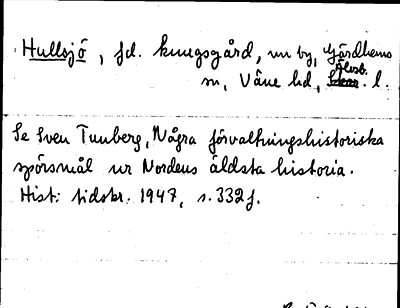 Hullsjö, fd. kungsgård, nu by, Gärdhems
sn, Väne hd, Älvsb. l.
Se Sven Tunberg, Några förvaltningshistoriska
spörsmål ur Nordens äldsta historia.
Hist. tidskr. 1947, s. 332 f.